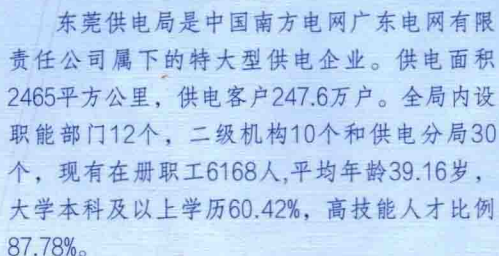 东莞供电局是中国南方电网广东电网有限
责任公司属下的特大型供电企业。供电面积
2465平方公里，供电客户247.6万户。全局内设
职能部门12个，二级机构10个和供电分局30
个，现有在册职工6168人,平均年龄39.16岁，
大学本科及以上学历60.42%，高技能人才比例
87.78%。